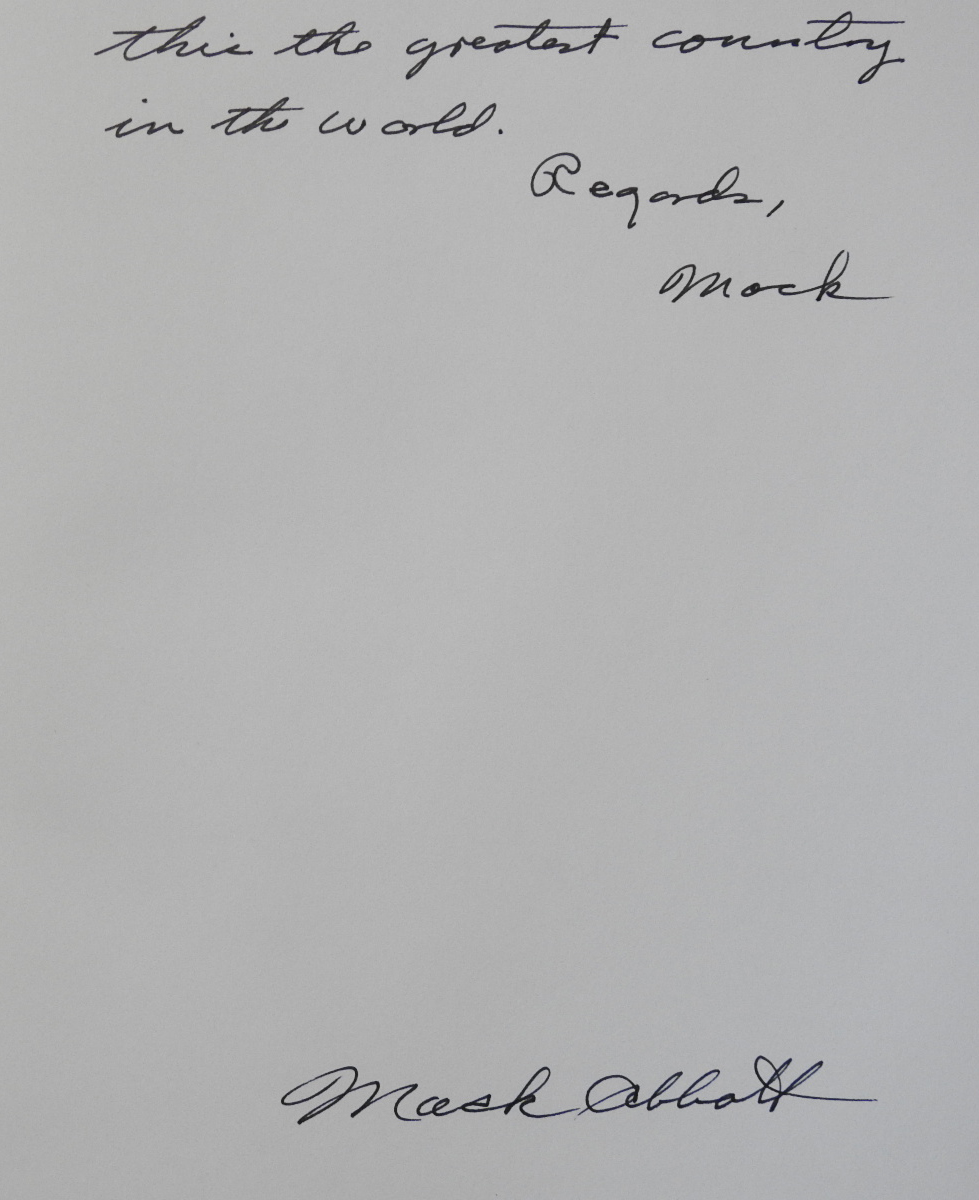 this the greatest country
in the world.
Regards,
Mack
Mack Abbott